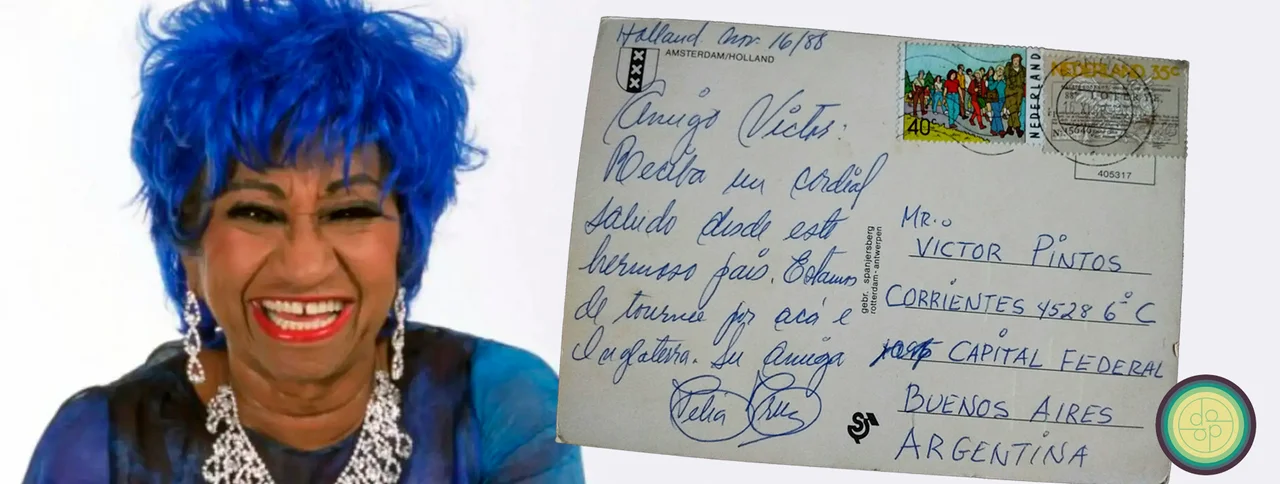 Holland Nov. 16/88
AMSTERDAM/HOLLAND
Amigo Victor:
Reciba un cordial
saludo desde este
hermoso país. Estamos
de tournee por acá e
Inglaterra. Su amiga
Celia Cruz
gebr. spanjersberg
rotterdam - antwerpen
40c
NEDERLAND
NEDERLAND 35c
405317
MR.
VICTOR PINTOS
CORRIENTES 4528 6º C
CAPITAL FEDERAL
BUENOS AIRES
ARGENTINA
do
op